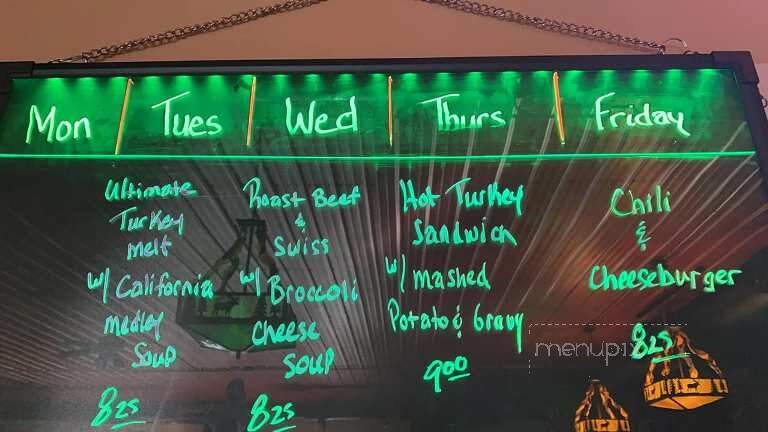 Mon Tues Wed Thurs Friday
Ultimate
Turkey
melt
w/ California
medley
Soup
825
Roast Beef
&
Swiss
w/ Broccoli
cheese
soup
825
Hot Turkey
Sandwich
w/ mashed
Potato & Gravy
900
Chili
&
Cheeseburger
825
menupix